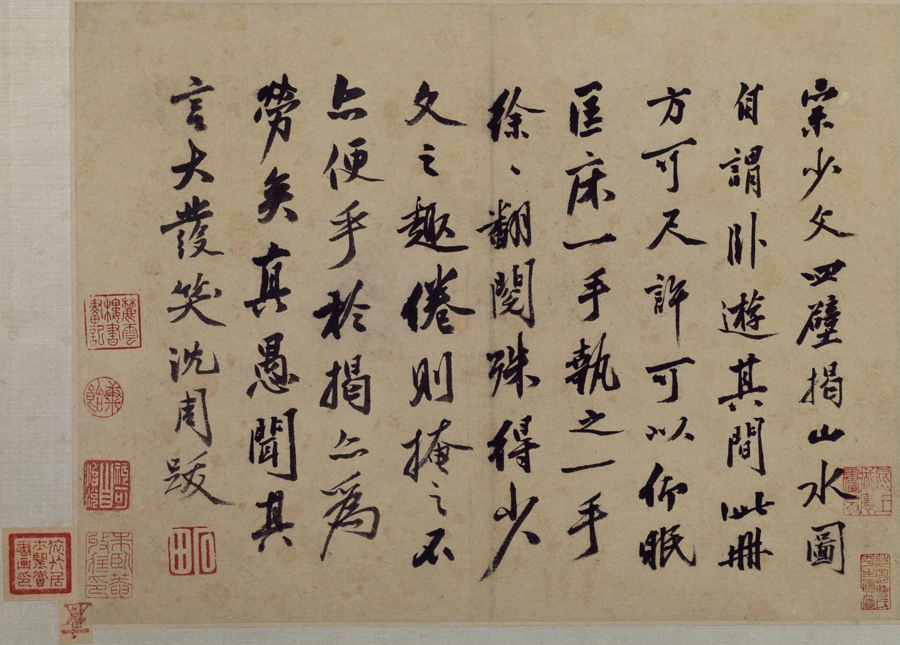 宗少文四壁揭山水圖
自謂卧遊其間此冊
方可尺許可以仰眠
匡床一手執之一手
徐、翻閱殊得少
文之趣倦則掩之不
亦便乎於揭亦爲
勞矣真愚聞其
言大發笑沈周跋
石田